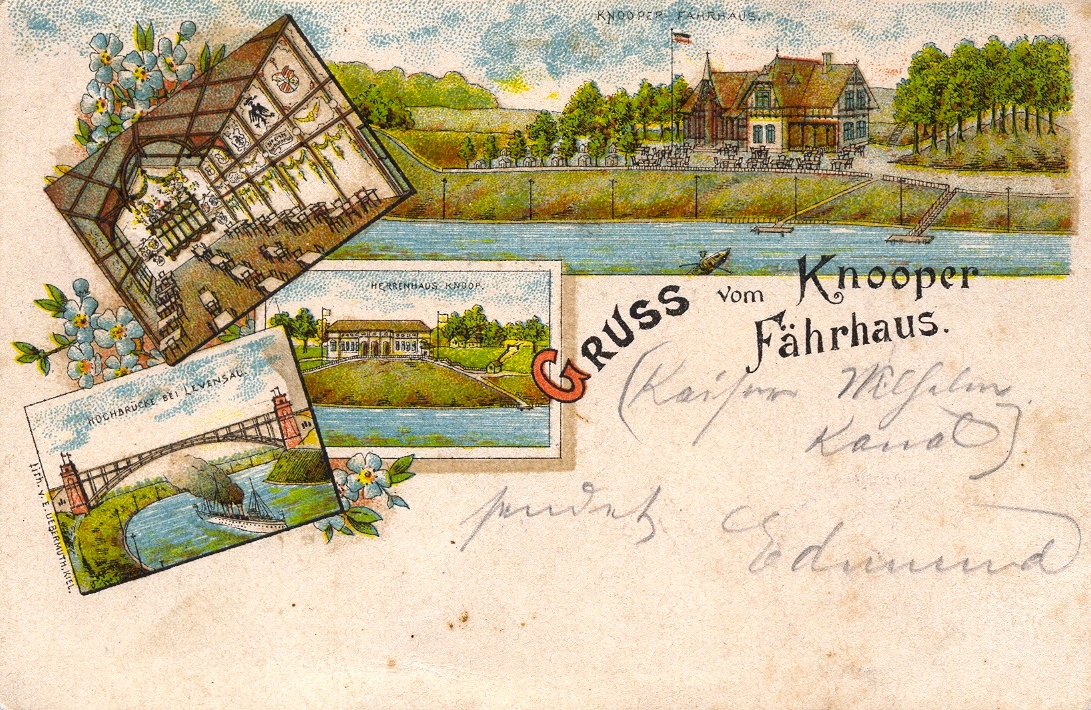 KNOOPER FÄHRHAUS.
HERRENHAUS KNOOP.
HOCHBRÜCKE BEI LEVENSAU.
GRUSS vom Knooper
Fährhaus.
(Kaiser Wilhelm
Kanal)
sendet
Edmund
Lith. v. E. UEBERMUTH, KIEL.